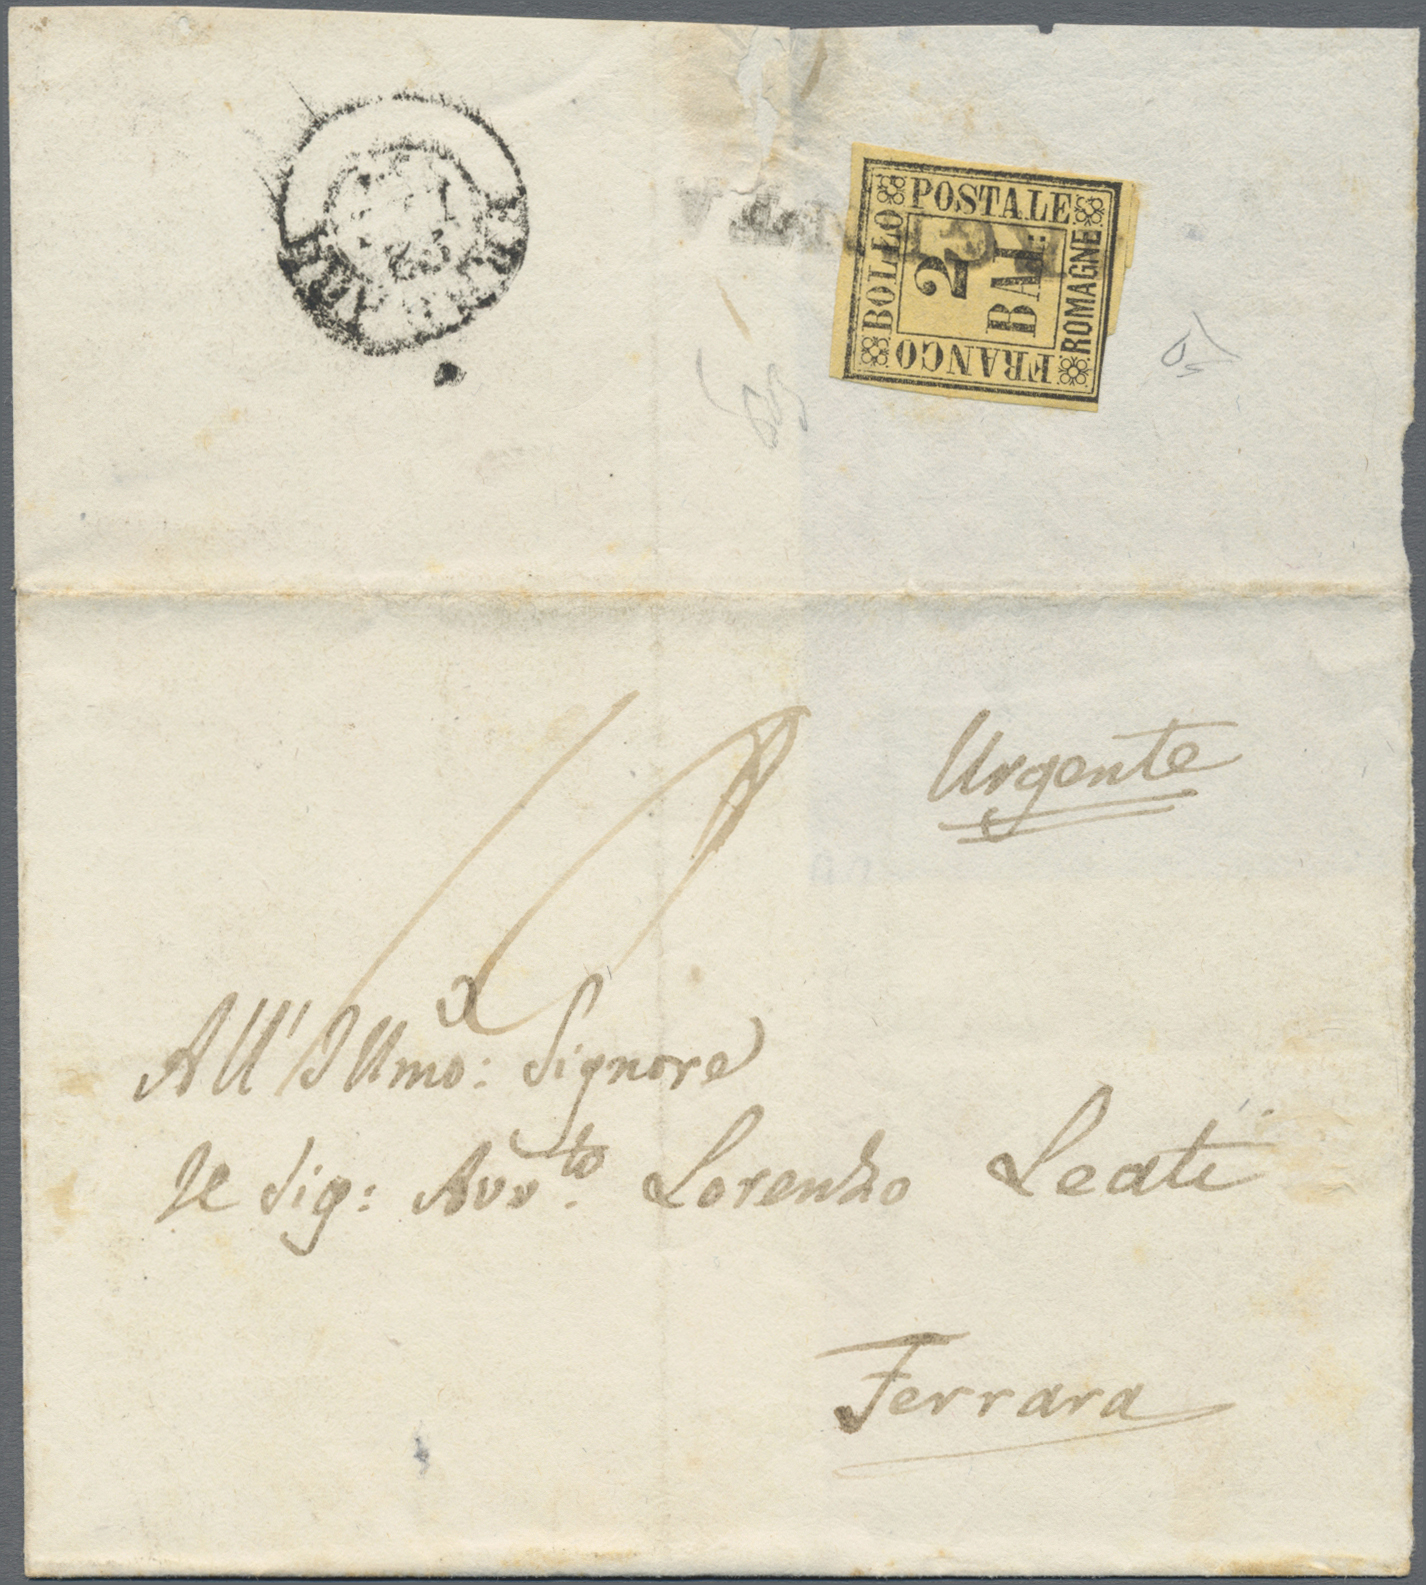 FRANCO BOLLO POSTALE ROMAGNE
2
BAI:
Urgente
All' Illmo: Signore
Il Sig: Avv.to Lorenzo Leati
Ferrara